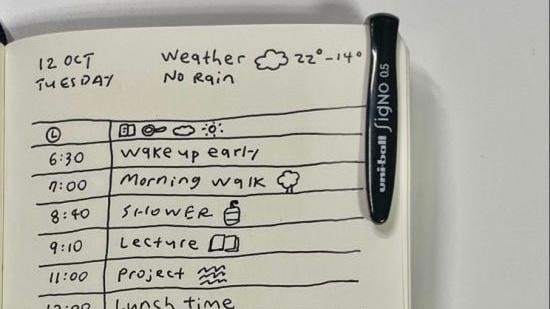 12 OCT
TUESDAY
Weather 22°-14°
No Rain
6:30 wake up early
7:00 Morning walk
8:40 SHOWER
9:10 Lecture
11:00 project
12:00 Lunch time
uni-ball SigNO 0.5